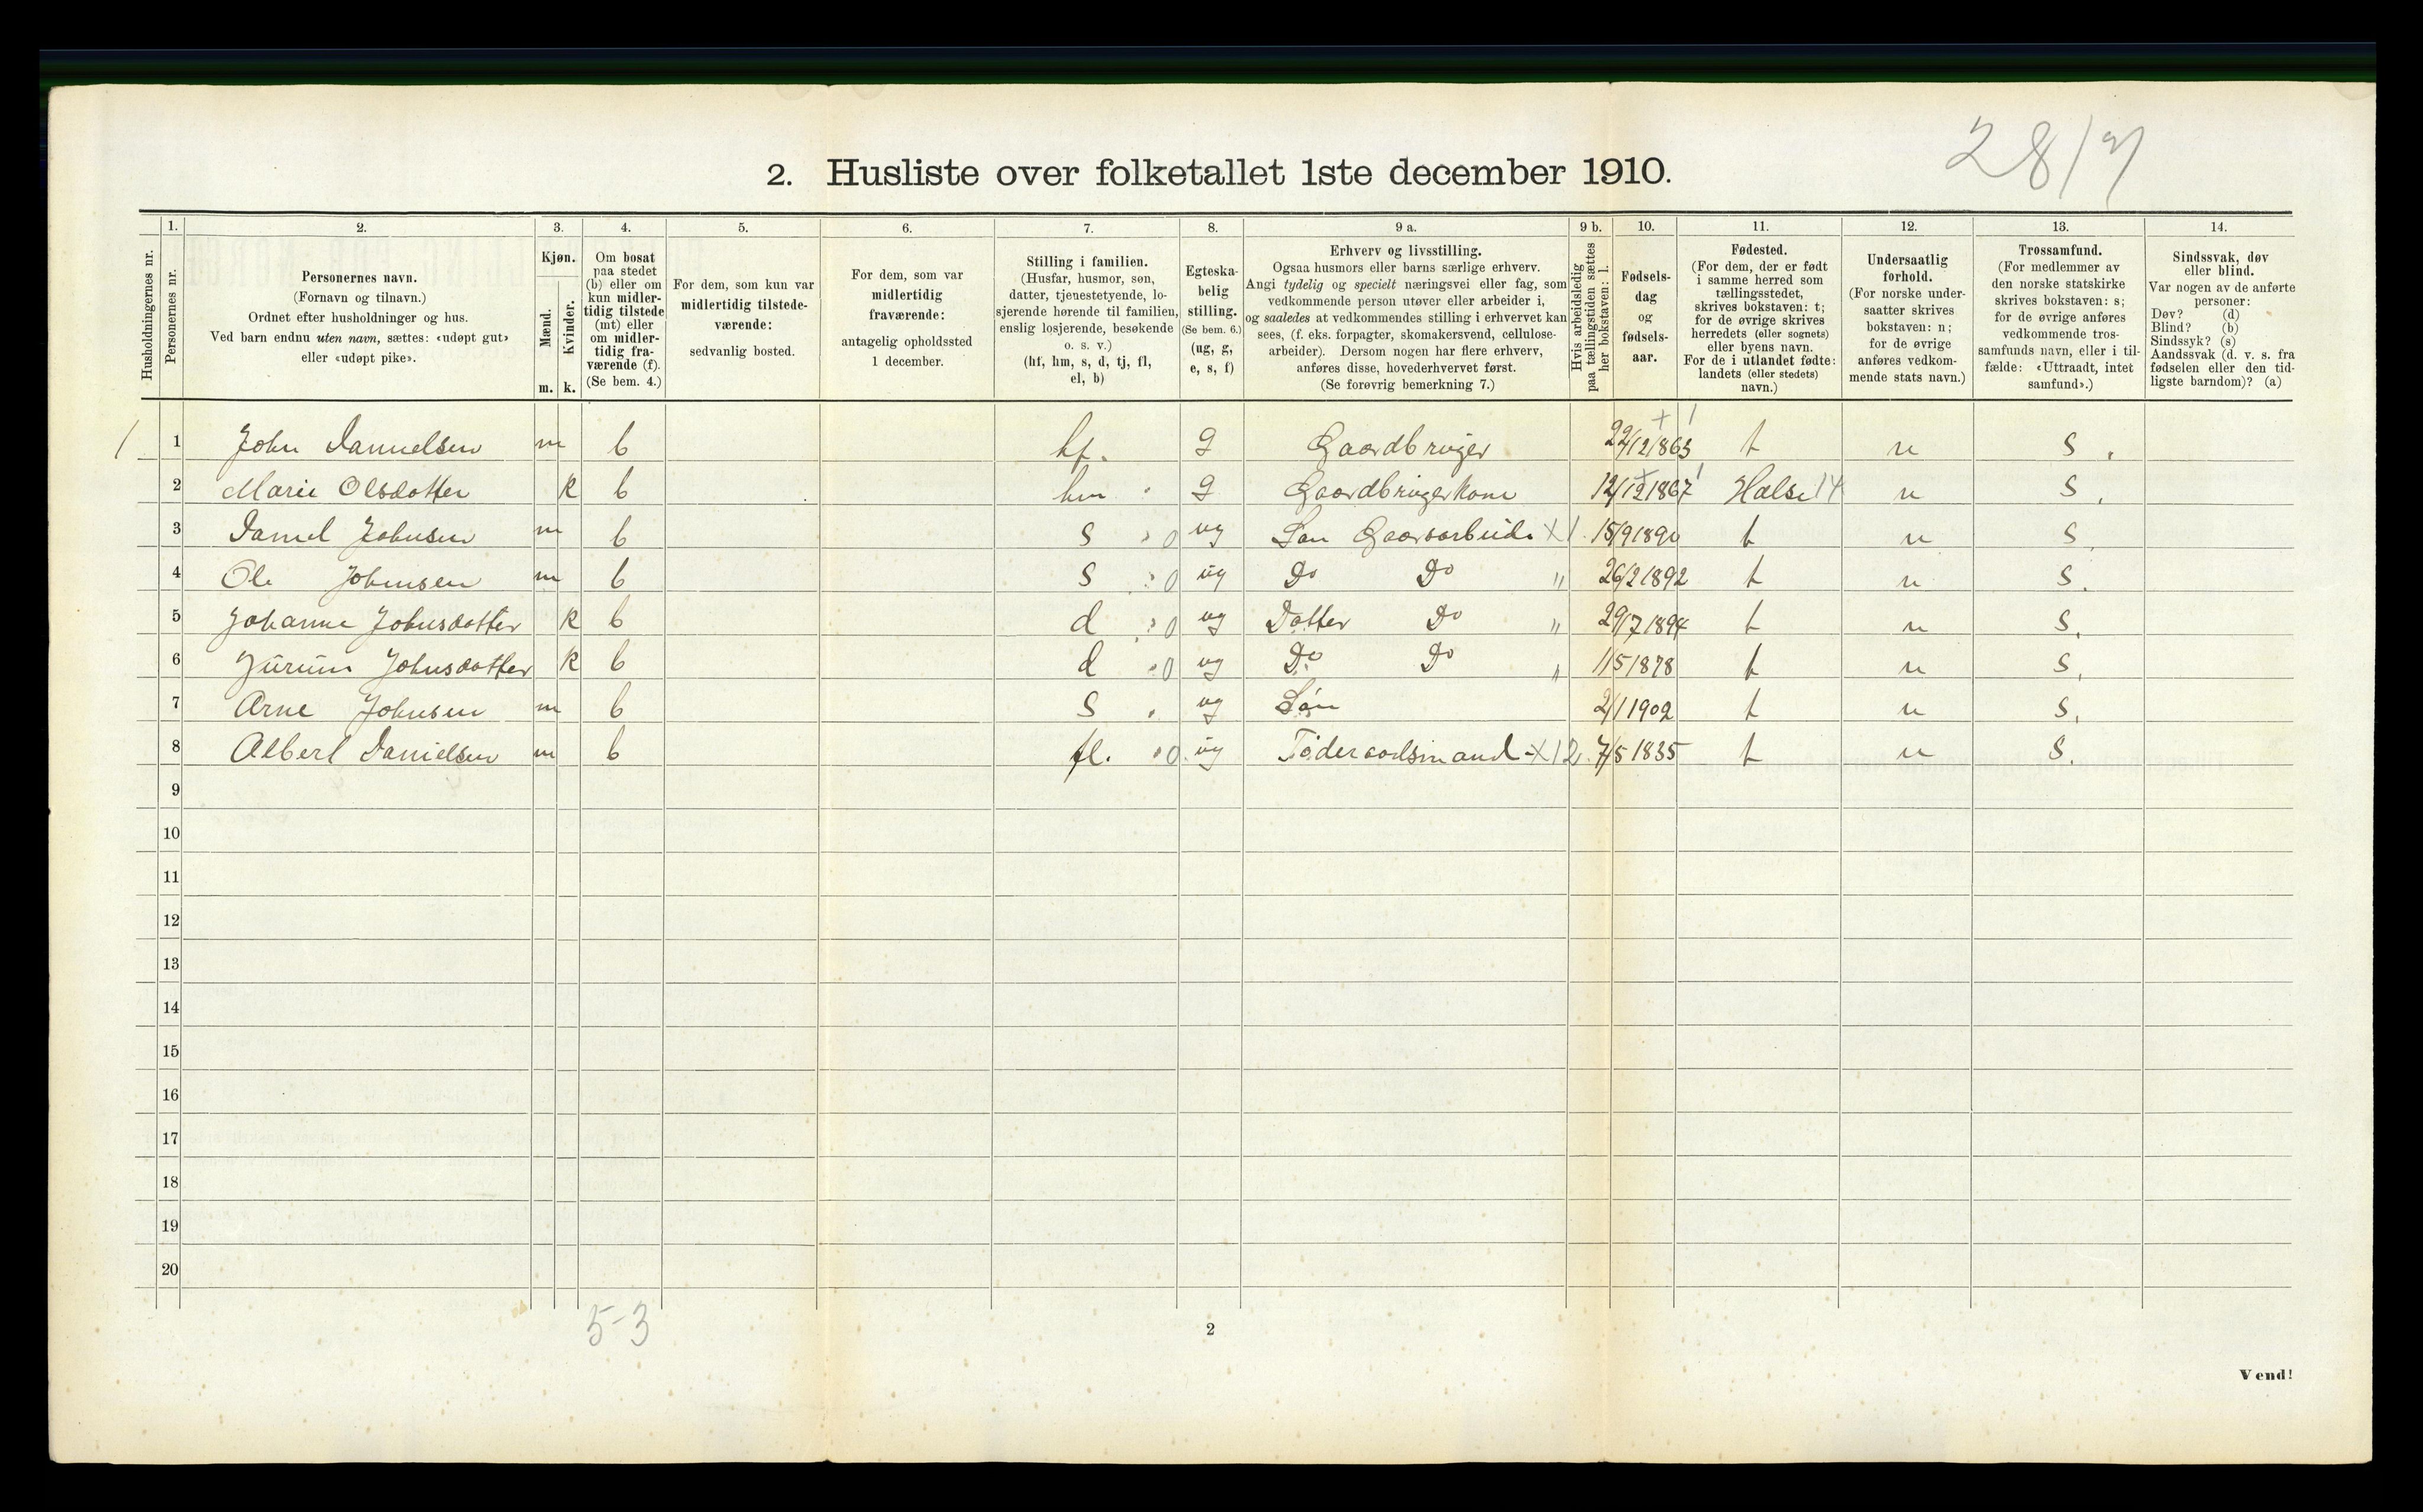 28/7
2. Husliste over folketallet 1ste december 1910.
Husholdningernes nr.
1. Personernes nr.
2. Personernes navn. (Fornavn og tilnavn.) Ordnet efter husholdninger og hus. Ved barn endnu uten navn, sættes: «udøpt gut» eller «udøpt pike».
3. Kjøn. Mænd. m. Kvinder. k.
4. Om bosat paa stedet (b) eller om kun midlertidig tilstede (mt) eller om midlertidig fraværende (f). (Se bem. 4.)
5. For dem, som kun var midlertidig tilstedeværende: sedvanlig bosted.
6. For dem, som var midlertidig fraværende: antagelig opholdssted 1 december.
7. Stilling i familien. (Husfar, husmor, søn, datter, tjenestetyende, losjerende hørende til familien, enslig losjerende, besøkende o. s. v.) (hf, hm, s, d, tj, fl, el, b)
8. Egteskabelig stilling. (Se bem. 6.) (ug, g, e, s, f)
9 a. Erhverv og livsstilling. Ogsaa husmors eller barns særlige erhverv. Angi tydelig og specielt næringsvei eller fag, som vedkommende person utøver eller arbeider i, og saaledes at vedkommendes stilling i erhvervet kan sees, (f. eks. forpagter, skomakersvend, cellulosearbeider). Dersom nogen har flere erhverv, anføres disse, hovederhvervet først. (Se forøvrig bemerkning 7.)
9 b. Hvis arbeidsledig paa tællingstiden sættes her bokstaven: l.
10. Fødselsdag og fødselsaar.
11. Fødested. (For dem, der er født i samme herred som tællingsstedet, skrives bokstaven: t; for de øvrige skrives herredets (eller sognets) eller byens navn. For de i utlandet fødte: landets (eller stedets) navn.)
12. Undersaatlig forhold. (For norske undersaatter skrives bokstaven: n; for de øvrige anføres vedkommende stats navn.)
13. Trossamfund. (For medlemmer av den norske statskirke skrives bokstaven: s; for de øvrige anføres vedkommende trossamfunds navn, eller i tilfælde: «Uttraadt, intet samfund».)
14. Sindssvak, døv eller blind. Var nogen av de anførte personer: Døv? (d) Blind? (b) Sindssyk? (s) Aandssvak (d. v. s. fra fødselen eller den tidligste barndom)? (a)
1 1 John Danielsen m b hf. g Gaardbruger 22/12 1863 t n s.
2 Marie Olsdotter k b hm g Gaardbrugerkone 12/12 1867 Halse 14 n s.
3 Daniel Johnsen m b s 0 ug Søn Gaardsarbeid. X 1 15/9 1890 t n s.
4 Ole Johnsen m b s 0 ug Do Do " 26/2 1892 t n s.
5 Johanne Johnsdotter k b d 0 ug Datter Do " 29/7 1894 t n s.
6 Jurunn Johnsdotter k b d 0 ug Do Do " 1/5 1878 t n s.
7 Arne Johnsen m b s ug Søn 2/1 1902 t n s.
8 Albert Danielsen m b fl. 0 ug Føderaadsmand X 12 7/5 1835 t n s.
9
10
11
12
13
14
15
16
17
18
19
20
5-3
2
Vend!